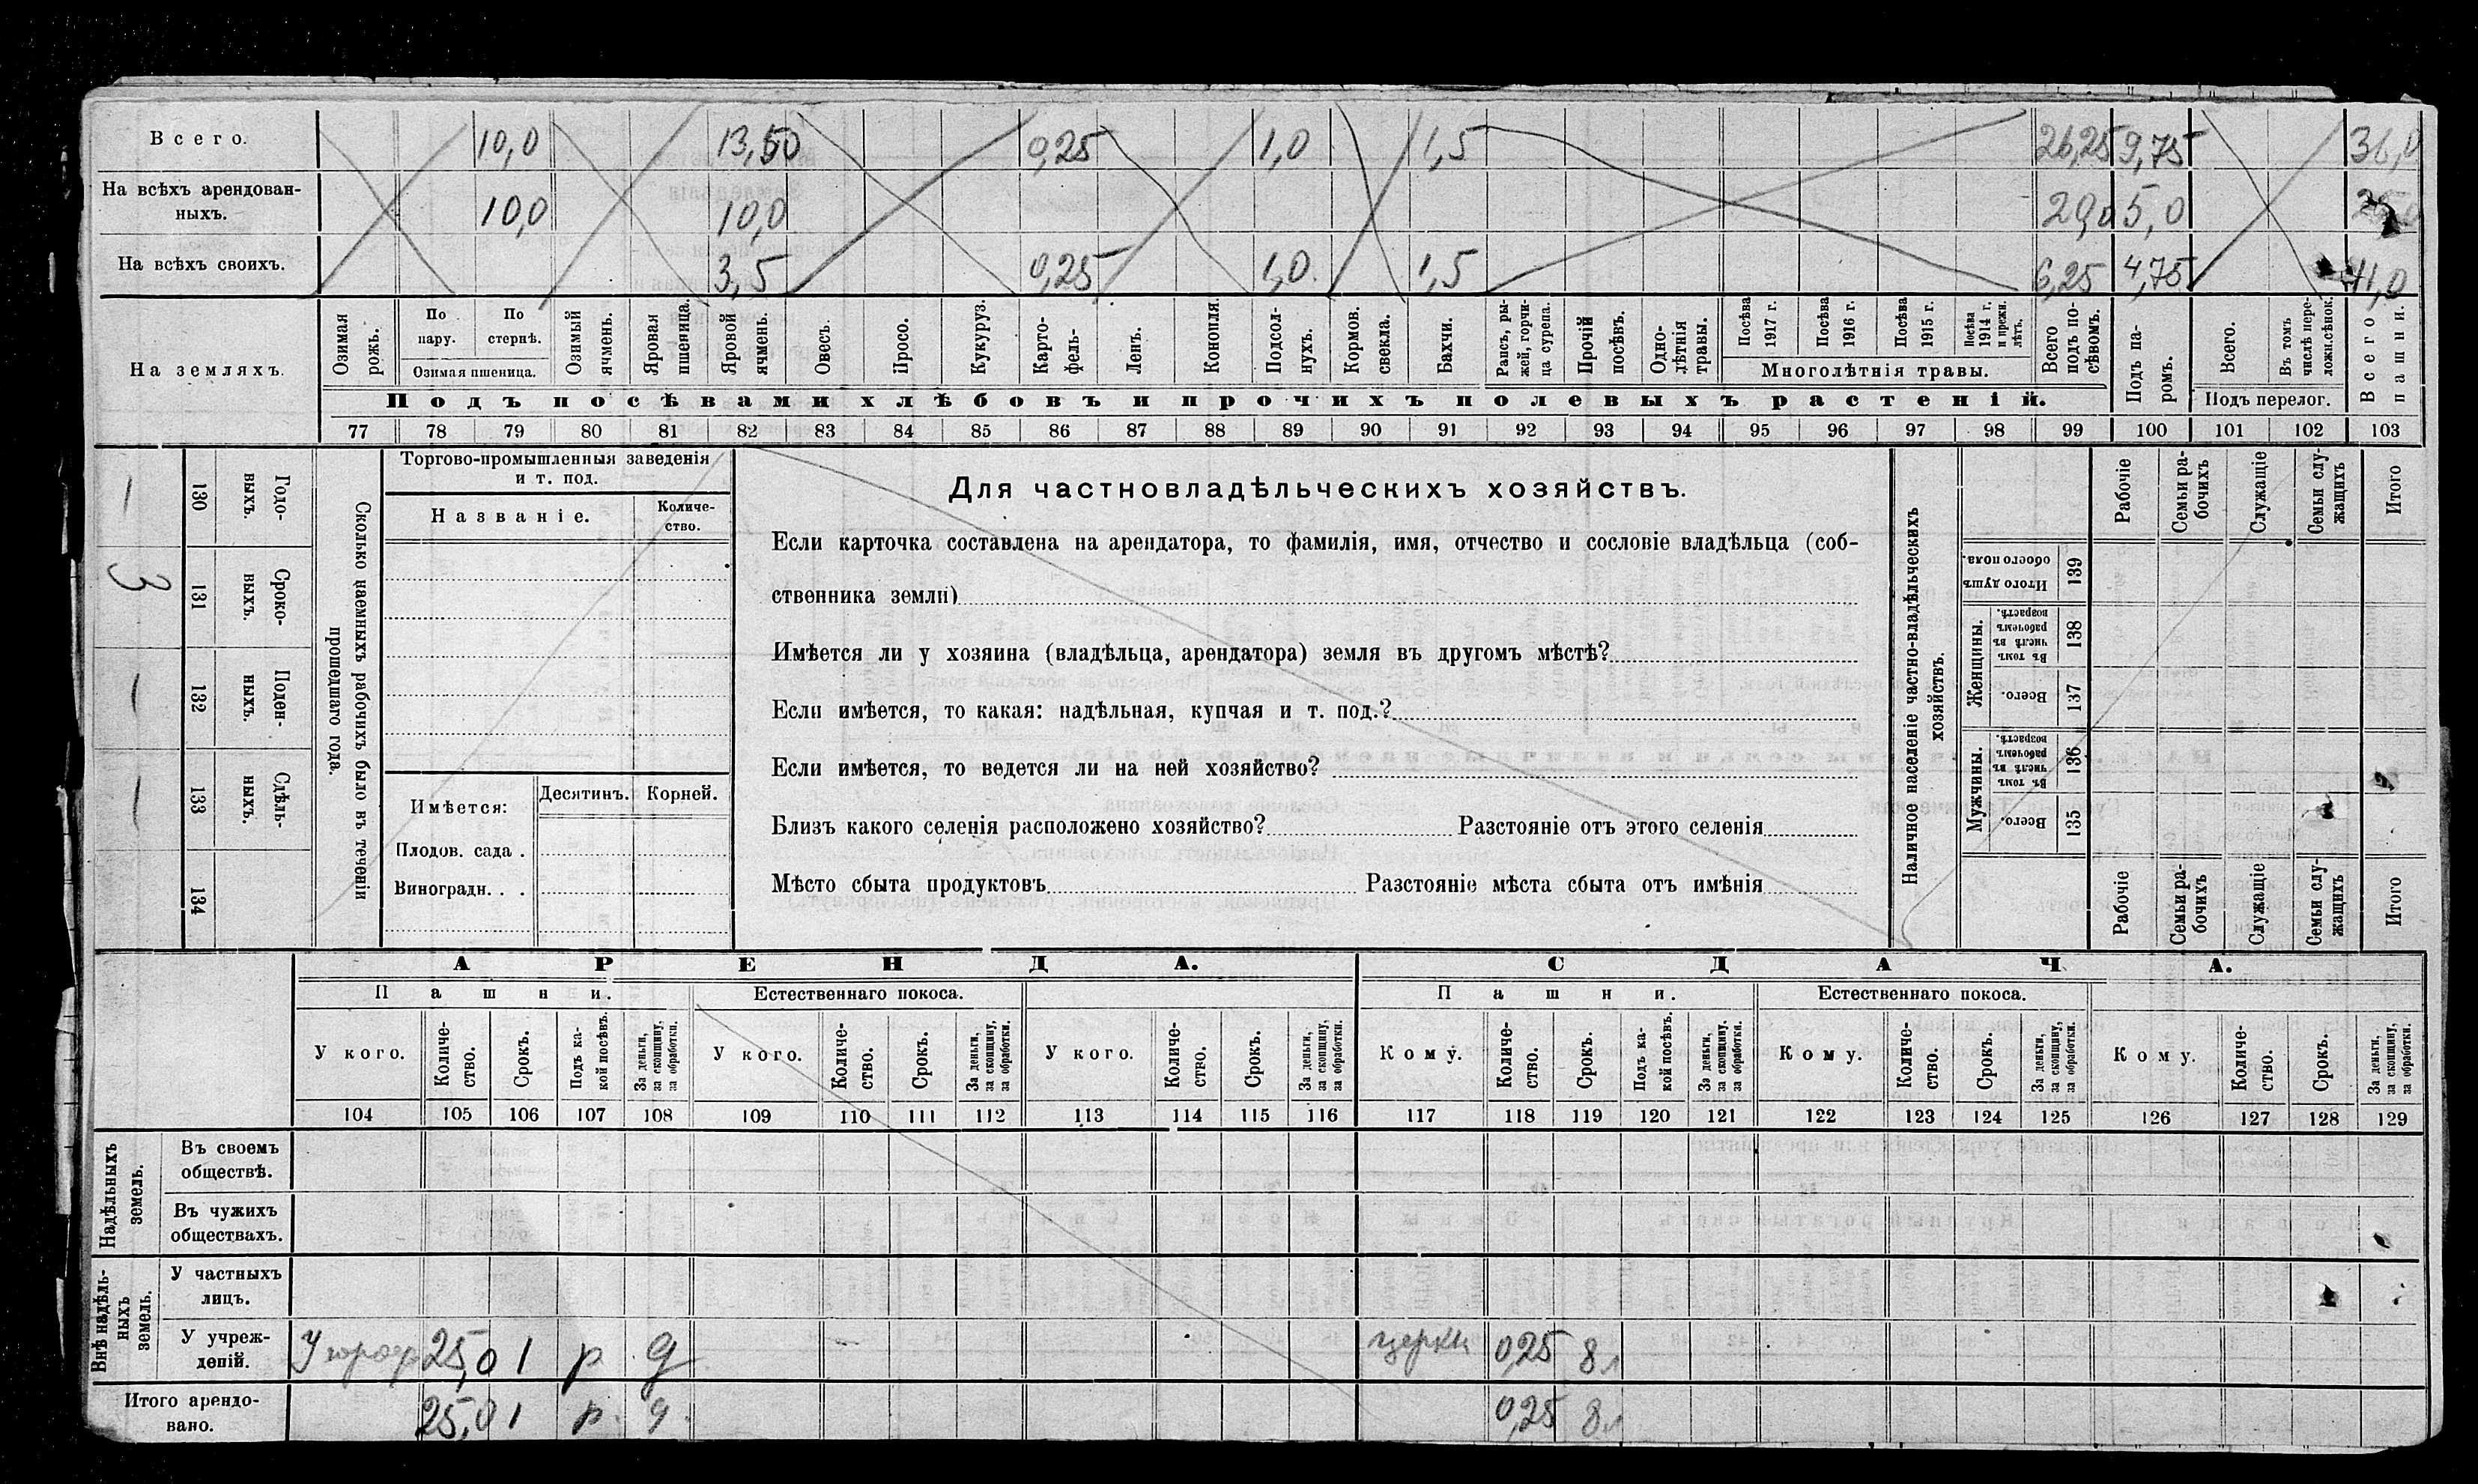 Всего. 10,0 13,50 0,25 1,0 1,5 26,25 9,75 36,0
На всѣхъ арендован-
ныхъ. 10,0 10,0 20,0 5,0
На всѣхъ своихъ. 3,5 0,25 1,0 1,5 6,25 4,75 11,0
На земляхъ.
Озимая рожь.
По пару.
По стернѣ.
Озимая пшеница.
Озимый ячмень.
Яровая пшеница.
Яровой ячмень.
Овесъ.
Просо.
Кукуруз.
Карто-
фель.
Ленъ.
Конопля.
Подсол-
нухъ.
Кормов. свекла.
Бахчи.
Рапсъ, ры-
жей, горчи-
ца сурепа.
Прочій посѣвъ.
Одно-
лѣтнія травы.
Посѣва 1917 г.
Посѣва 1916 г.
Посѣва 1915 г.
Посѣва 1914 г. и прежн. лѣтъ.
Многолѣтнія травы.
Всего подъ по-
сѣвомъ.
Подъ па-
ромъ.
Всего.
Въ томъ числѣ пере-
ложн.сѣнок.
Подъ перелог.
Всего пашни.
Подъ посѣвами хлѣбовъ и прочихъ полевыхъ растеній.
77 78 79 80 81 82 83 84 85 86 87 88 89 90 91 92 93 94 95 96 97 98 99 100 101 102 103
Сколько наемныхъ рабочихъ было въ теченіи
прошедшаго года.
Годо-
выхъ.
130 —
Сроко-
выхъ.
131 3
Поден-
ныхъ.
132 —
Сдѣль-
ныхъ.
133 —
134
Торгово-промышленныя заведенія
и т. под.
Названіе.
Количе-
ство.
Имѣется:
Десятинъ.
Корней.
Плодов. сада .
Виноградн. . .
Для частновладѣльческихъ хозяйствъ.
Если карточка составлена на арендатора, то фамилія, имя, отчество и сословіе владѣльца (соб-
ственника земли)
Имѣется ли у хозяина (владѣльца, арендатора) земля въ другомъ мѣстѣ?
Если имѣется, то какая: надѣльная, купчая и т. под.?
Если имѣется, то ведется ли на ней хозяйство?
Близъ какого селенія расположено хозяйство? Разстояніе отъ этого селенія
Мѣсто сбыта продуктовъ Разстояніе мѣста сбыта отъ имѣнія
Наличное населеніе частно-владѣльческихъ
хозяйствъ.
Рабочіе
Семьи ра-
бочихъ
Служащіе
Семьи слу-
жащихъ
Итого
Итого душъ обоего пола. 139
Женщины.
Въ томъ числѣ въ рабочемъ возрастѣ. 138
Всего. 137
Мужчины.
Въ томъ числѣ въ рабочемъ возрастѣ. 136
Всего. 135
Рабочіе
Семьи ра-
бочихъ
Служащіе
Семьи слу-
жащихъ
Итого
АРЕНДА. СДАЧА.
Пашни. Естественнаго покоса. Пашни. Естественнаго покоса.
У кого.
Количе-
ство.
Срокъ.
Подъ ка-
кой посѣвъ.
За деньги,
за скопщину,
за обработки.
У кого.
Количе-
ство.
Срокъ.
За деньги,
за скопщину,
за обработки.
У кого.
Количе-
ство.
Срокъ.
За деньги,
за скопщину,
за обработки.
Кому.
Количе-
ство.
Срокъ.
Подъ ка-
кой посѣвъ.
За деньги,
за скопщину,
за обработки.
Кому.
Количе-
ство.
Срокъ.
За деньги,
за скопщину,
за обработки.
Кому.
Количе-
ство.
Срокъ.
За деньги,
за скопщину,
за обработки.
104 105 106 107 108 109 110 111 112 113 114 115 116 117 118 119 120 121 122 123 124 125 126 127 128 129
Надѣльныхъ
земель.
Въ своемъ
обществѣ.
Въ чужихъ
обществахъ.
Внѣ надѣль-
ныхъ
земель.
У частныхъ
лицъ.
У учреж-
деній. 25,0 1 р д церкви 0,25 8л
Итого арендо-
вано. 25,0 1 р. д. 0,25 8л